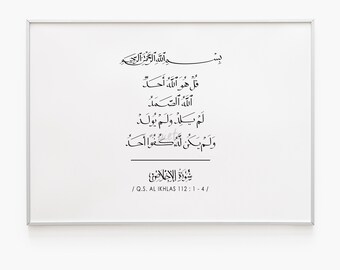 بِسْمِ اللَّهِ الرَّحْمَٰنِ الرَّحِيمِ
قُلْ هُوَ اللَّهُ أَحَدٌ
اللَّهُ الصَّمَدُ
لَمْ يَلِدْ وَلَمْ يُولَدْ
وَلَمْ يَكُن لَّهُ كُفُوًا أَحَدٌ
سُورَةُ الإِخْلَاصِ
/ Q.S. AL IKHLAS 112 ; 1 - 4 /